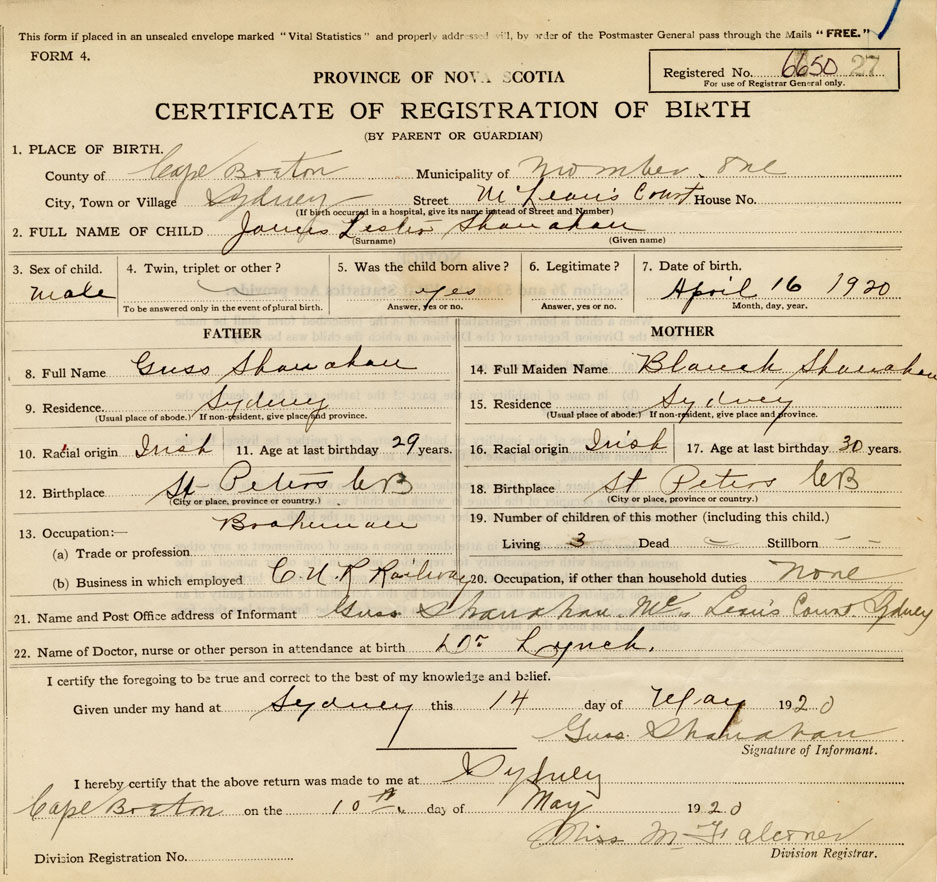 This form if placed in an unsealed envelope marked "Vital Statistics" and properly addressed will, by order of the Postmaster General pass through the Mails "FREE."
FORM 4.
Registered No. 6650 27
For use of Registrar General only.
PROVINCE OF NOVA SCOTIA
CERTIFICATE OF REGISTRATION OF BIRTH
(BY PARENT OR GUARDIAN)
1. PLACE OF BIRTH.
County of Cape Breton Municipality of Number One
City, Town or Village Sydney Street McLean's Court House No.
(If birth occurred in a hospital, give its name instead of Street and Number)
2. FULL NAME OF CHILD James Lester Shanahan
(Surname) (Given name)
3. Sex of child. 4. Twin, triplet or other? 5. Was the child born alive? 6. Legitimate? 7. Date of birth.
Male yes April 16 1920
To be answered only in the event of plural birth. Answer, yes or no. Answer, yes or no. Month, day, year.
FATHER MOTHER
8. Full Name Guss Shanahan 14. Full Maiden Name Blanch Shanahan
9. Residence Sydney 15. Residence Sydney
(Usual place of abode.) If non-resident, give place and province. (Usual place of abode.) If non-resident, give place and province.
10. Racial origin Irish 11. Age at last birthday 29 years. 16. Racial origin Irish 17. Age at last birthday 30 years.
12. Birthplace St Peters CB 18. Birthplace St Peters CB
(City or place, province or country.) (City or place, province or country.)
13. Occupation:— Brakeman 19. Number of children of this mother (including this child.)
(a) Trade or profession Living 3 Dead – Stillborn – –
(b) Business in which employed C.N.R Railway 20. Occupation, if other than household duties None
21. Name and Post Office address of Informant Guss Shanahan Mc Lean's Court Sydney
22. Name of Doctor, nurse or other person in attendance at birth Dr Lynch.
I certify the foregoing to be true and correct to the best of my knowledge and belief.
Given under my hand at Sydney this 14 day of May 1920
Guss Shanahan
Signature of Informant.
I hereby certify that the above return was made to me at Sydney
Cape Breton on the 10th day of May 1920
Miss M
Division Registration No. Division Registrar.